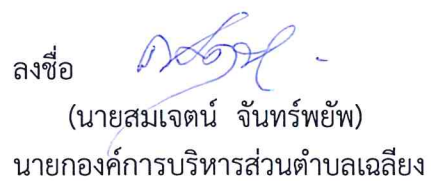 ลงชื่อ
(นายสมเจตน์ จันทร์พยัพ)
นายกองค์การบริหารส่วนตำบลเฉลียง